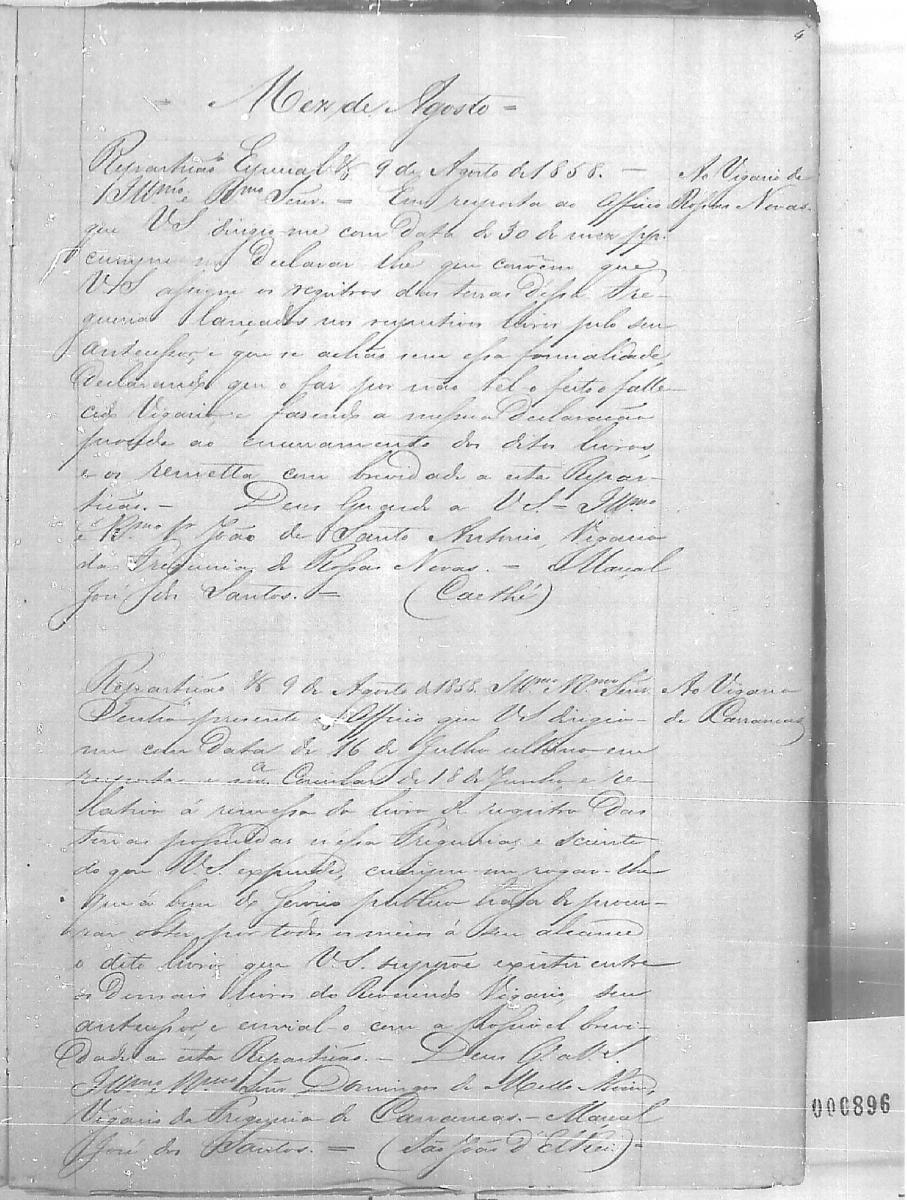 4
- Mez de Agosto -
Repartição Especial 9 de Agosto de 1858. - Ao Vigario de
Illmo e Rmo Senr. - Em resposta ao Officio Roças Novas.
que V.S. dirigio-me com data de 30 do mez pp.
cumpre-me declarar-lhe que convêm que
V.S. assigne os registros das terras dessa Fre-
guezia lançados nos respectivos livros pelo seu
antecessor, e que se achão sem essa formalidade,
declarando que o faz por não tel-o feito o falle-
cido Vigario, e fazendo a mesma declaração
proceda ao encerramento dos ditos livros,
e os remetta com brevidade a esta Repar-
tição. - Deus Guarde a V.S. - Illmo
e Rmo Sr João de Santo Antonio, Vigario
da Freguezia de Roças Novas. - Marçal
José dos Santos. - (Caethé)
Repartição 9 de Agosto de 1858. Illmo Rmo Senr Ao Vigario
Tenho presente o Officio que V.S. dirigio- de Carrancas
me com data de 16 de Julho ultimo em
resposta a Circular de 18 de Junho, e re-
lativo á remessa do livro de registro das
terras possuidas n'essa Freguezia, e sciente
do que V.S. expende, cumpre-me rogar-lhe
que á bem do serviço publico trate de procu-
rar obter por todos os meios á seu alcance
o dito livro, que V.S. suppõe existir entre
os demais livros do Reverendo Vigario seu
antecessor, e envial-o com a possivel brevi-
dade a esta Repartição. - Deus G. a V.S.
Illmo e Rmo Senr Domingos de Mello
Vigario da Freguezia de Carrancas. - Marçal
José dos Santos. - (São João d'El Rei.) -
000896